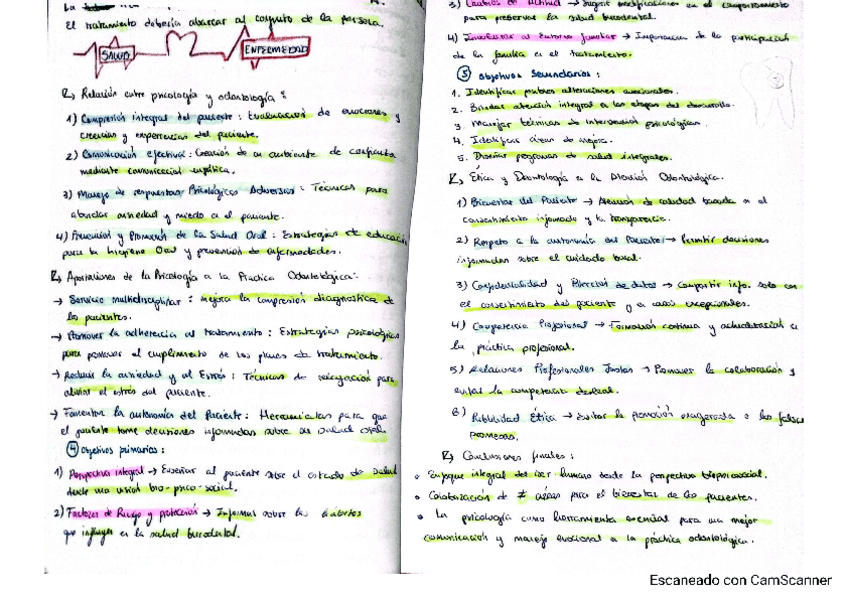 La
El tratamiento debería abarcar al conjunto de la persona.
SALUD ENFERMEDAD
Relación entre psicología y odontología:
1) Comprensión integral del paciente: Evaluación de emociones y
creencias y experiencias del paciente.
2) Comunicación efectiva: Creación de un ambiente de confianza
mediante comunicación empática.
3) Manejo de respuestas Psicológicas Adversas: Técnicas para
abordar ansiedad y miedo en el paciente.
4) Prevención y Promoción de la Salud Oral: Estrategias de educación
para la higiene Oral y prevención de enfermedades.
Aportaciones de la Psicología a la Práctica Odontológica:
→ Servicio multidisciplinar: mejora la comprensión diagnóstica de
los pacientes.
→ Promover la adherencia al tratamiento: Estrategias psicológicas
para promover el cumplimiento de los planes de tratamiento.
→ Reducir la ansiedad y el Estrés: Técnicas de relajación para
aliviar el estrés del paciente.
→ Fomentar la autonomía del Paciente: Herramientas para que
el paciente tome decisiones informadas sobre su salud oral.
④ Objetivos primarios:
1) Perspectiva integral → Enseñar al paciente sobre el estado de salud
desde una visión bio-psico-social.
2) Factores de Riesgo y protección → Informar sobre los
que influyen en la salud bucodental.
3) Cambios de Actitud → Sugerir modificaciones en el comportamiento
para preservar la salud bucodental.
4) Involucrar al Entorno familiar → Importancia de la participación
de la familia en el tratamiento.
⑤ Objetivos Secundarios:
1. Identificar posibles alteraciones emocionales.
2. Brindar atención integral en las etapas del desarrollo.
3. Manejar técnicas de intervención psicológica.
4. Identificar áreas de mejora.
5. Diseñar programas de salud integrales.
Ética y Deontología en la Atención Odontológica.
1) Bienestar del Paciente → Atención de calidad basada en el
consentimiento informado y la transparencia.
2) Respeto a la autonomía del Paciente → Permitir decisiones
informadas sobre el cuidado bucal.
3) Confidencialidad y Protección de datos → Compartir info. solo con
el consentimiento del paciente y en casos excepcionales.
4) Competencia Profesional → Formación continua y actualización en
la práctica profesional.
5) Relaciones Profesionales Justas → Promover la colaboración y
evitar la competencia desleal.
6) Publicidad Ética → Evitar la promoción exagerada o las falsas
promesas.
Conclusiones finales:
• Enfoque integral del ser humano desde la perspectiva biopsicosocial.
• Colaboración de ≠ áreas para el bienestar de los pacientes.
• La psicología como herramienta esencial para una mejor
comunicación y manejo emocional en la práctica odontológica.
Escaneado con CamScanner